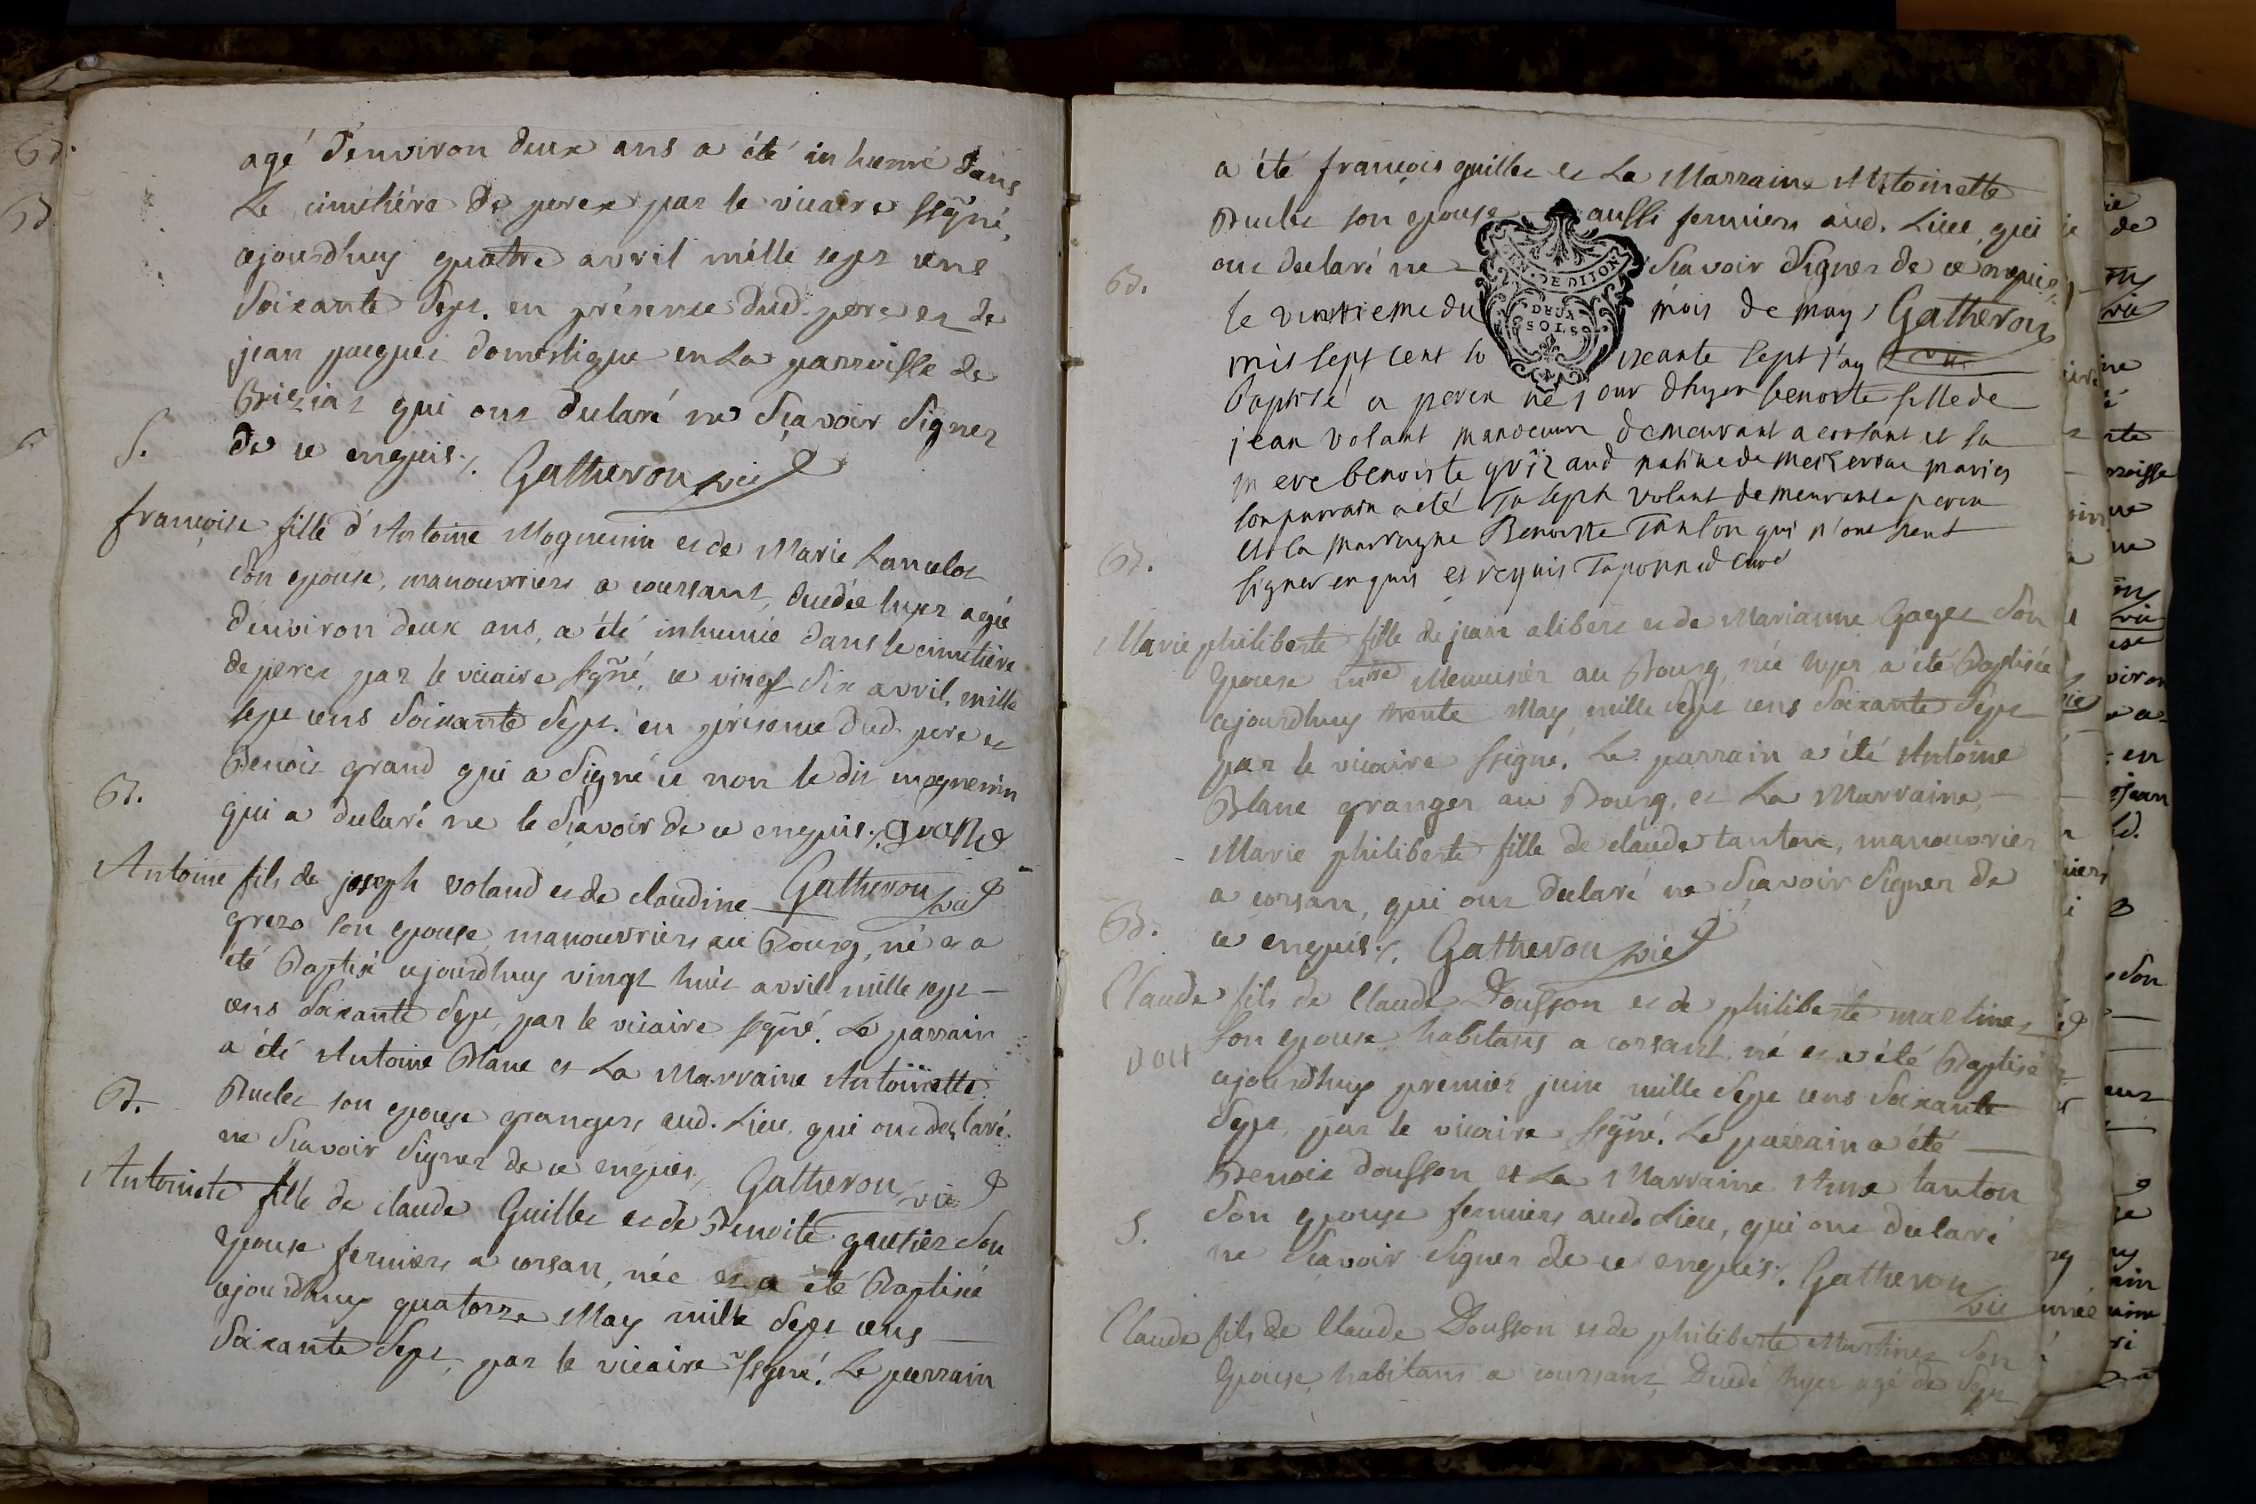 agé d'environ deux ans a été in humé dans
Le cimetière de perex par le vicaire ssigné,
ajourdhuy quatre avril mille sept cens
Soixante Sept. en présence dud. pere et de
jean jacques domestique en La parroisse de
qui ont declaré ne Sçavoir Signer
S.
de ce enquis ./. Gatheron vic
françoise fille d'Antoine Moguenin et de Marie Lancelot
Son epouse, manouvriers a coursant, decedée hyer agée
d'environ deux ans, a été inhumée dans le cimetière
de perex par le vicaire ssigné, ce vingt Six avril, mille
sept cens Soixante Sept. en présence dud. pere et
Benoit grand qui a Signé et non le dit mognenin
B.
qui a declaré ne le Sçavoir de ce enquis ./. grand
Gatheron vic
Antoine fils de joseph voland et de claudine
son epouse, manouvriers au Bourg, né et a
été Baptisé ajourdhuy vingt huit avril mille sept
cens Soixante Sept, par le vicaire ssigné. Le parrain
a été Antoine Blanc et La Marraine Antoinette
B.
Buclet son epouse grangers aud. Lieu, qui ont declaré
ne Sçavoir Signer de ce enquis, Gatheron vic
Antoinete fille de claude Guillet et de Benoite gautier Son
Epouse fermiers a corsan, née et a été Baptisée
ajourdhuy quatorze May mille Sept cens
Soixante Sept, par le vicaire ssigné. Le parrain
a été françois guillet et La Marraine Antoinette
Buclet son epouse aussi fermiers aud. Lieu, qui
B.
ont declaré ne Sçavoir Signer de ce enquis
EN. DE DIJON
DEUX
SOLS
Gatheron
le vintieme du mois de may
mil sept cent soixante sept j'ay
baptisé a perex né jour dhyer benoite fille de
jean volant manoeuvre demeurant a corsant et sa
mere benoiste aud mariés
son parrain a été Joseph volant demeurant a perex
et la marrayne Benoiste Tanton qui n'ont sceut
B.
signer enquis et requis curé
Marie philiberte fille de jean alibert et de Marianne Gaget Son
Epouse Menuisier au Bourg, née hyer a été Baptisée
ajourdhuy trente May mille Sept cens Soixante Sept
par le vicaire ssigné. Le parrain a été Antoine
Blanc granger au Bourg, et La Marraine
Marie philiberte fille de claude tanton, manouvrier
a corsan, qui ont declaré ne Sçavoir Signer de
B.
ce enquis ./. Gatheron vic
Claude fils de Claude Dousson et de philiberte martinet
Son epouse habitans a corsant né et a été Baptisé
ajourdhuy premier juin mille Sept cens Soixante
Sept, par le vicaire ssigné. Le parrain a été
Benoit dousson et La Marraine Anne tanton
S.
Son epouse fermiers aud. Lieu, qui ont declaré
ne Sçavoir Signer de ce enquis ./. Gatheron vic
Claude fils de Claude Dousson et de philiberte Martinet Son
Epouse, habitans a coursant, Decedé hyer agé de Sept